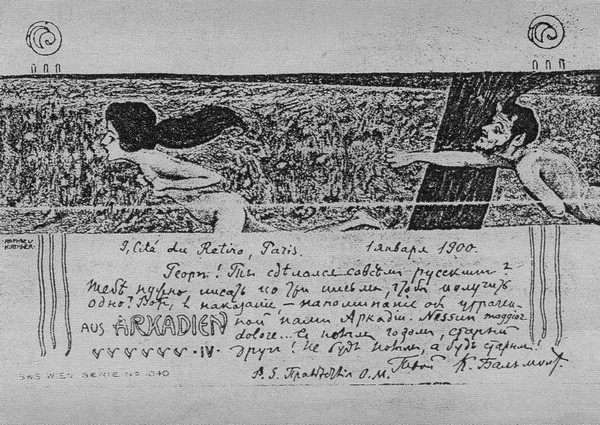 RAPHAEL KIRCHNER
9, Cité du Retiro, Paris. 1 января 1900.
Георг! Ты сдѣлался совсѣмъ русскимъ?
Тебѣ нужно писать по три письма, чтобы получить
одно? Вотъ, въ наказаніе – напоминаніе об утрачен-
ной нами Аркадіи. Nessun maggior
dolore... Съ новым годомъ, старый
другъ! Не будь новымъ, а будь старымъ!
P. S. О. М. Твой К. Бальмонт.
AUS ARKADIEN
IV.
S&S WIEN SERIE No